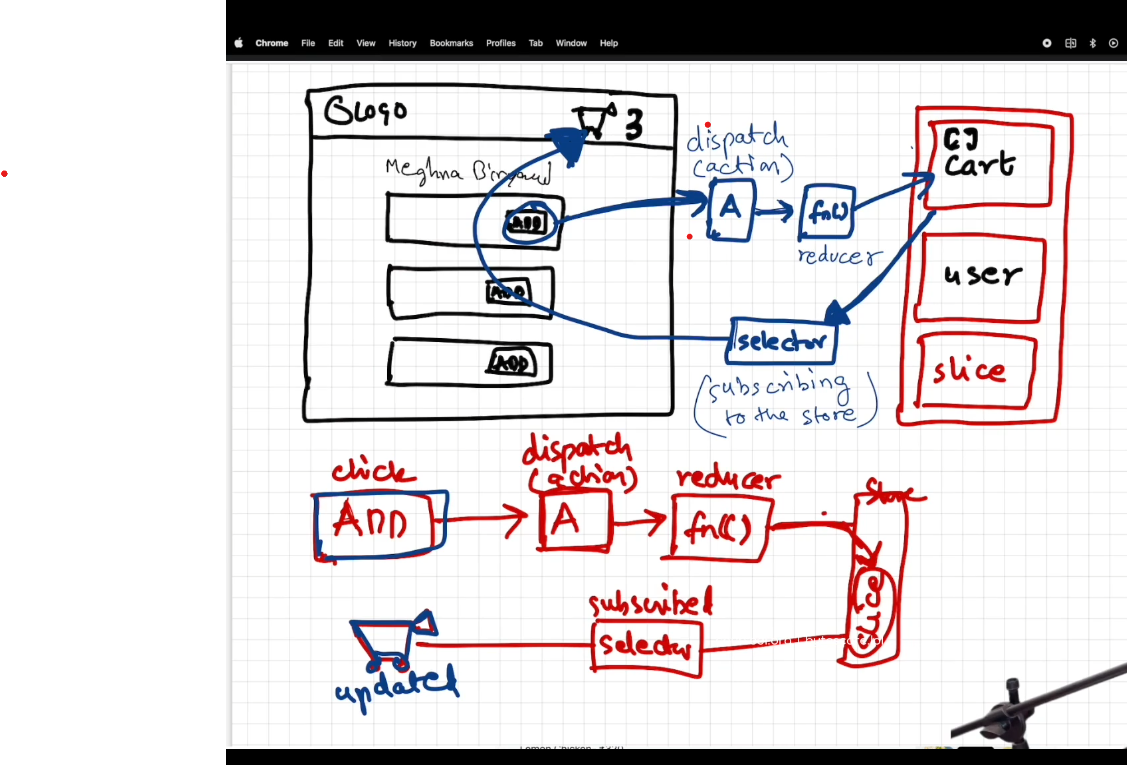 Chrome File Edit View History Bookmarks Profiles Tab Window Help
Logo
3
Meghna
ADD
ADD
ADD
dispatch
(action)
A
fn()
reducer
[]
cart
user
slice
selector
(subscribing
to the store)
click
ADD
dispatch
(action)
A
reducer
fn()
Store
slice
subscribed
selector
updated